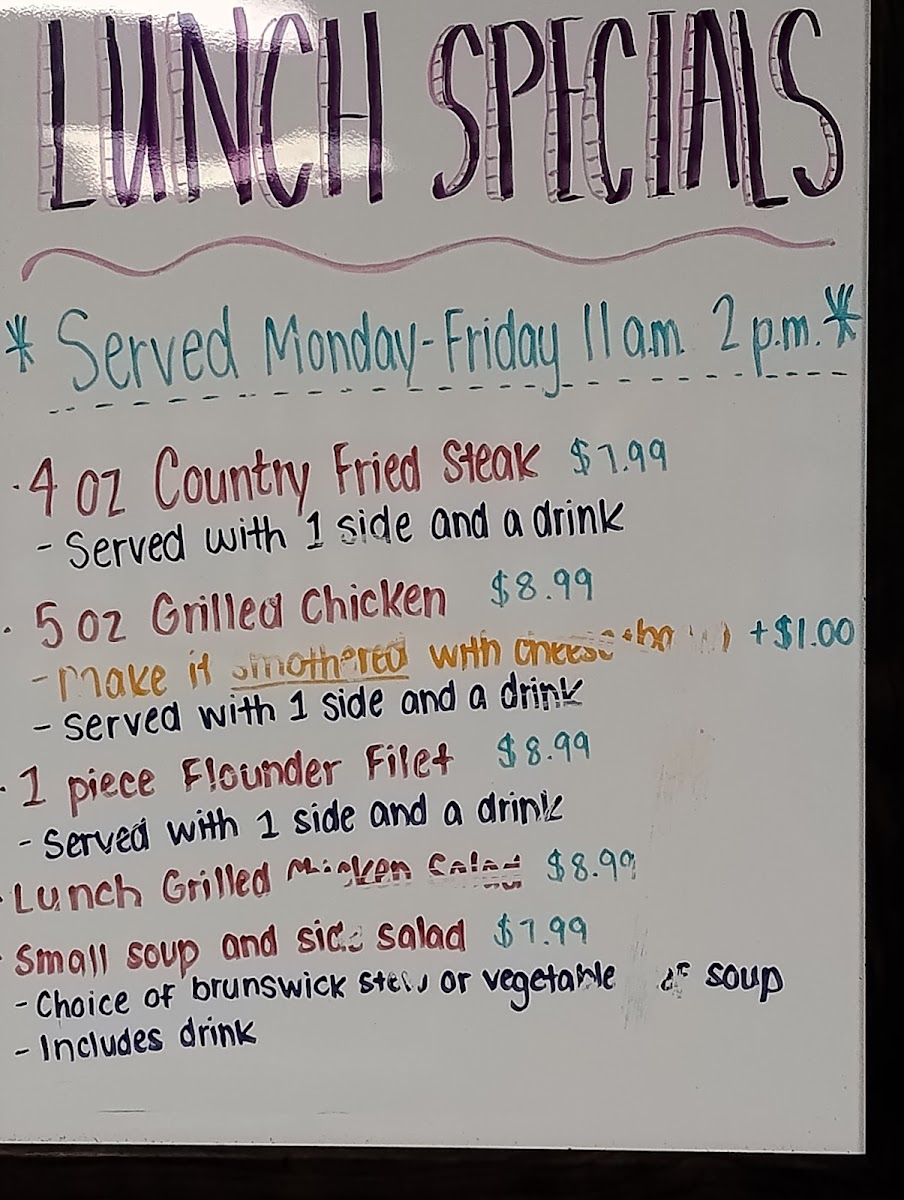 LUNCH SPECIALS
* Served Monday-Friday 11 a.m. 2 p.m. *
· 4 oz Country Fried Steak $7.99
- Served with 1 side and a drink
· 5 oz Grilled Chicken $8.99
- make it smothered with cheese +$1.00
- Served with 1 side and a drink
· 1 piece Flounder Filet $8.99
- Served with 1 side and a drink
· Lunch Grilled Chicken Salad $8.99
· Small soup and side salad $7.99
- Choice of brunswick stew or vegetable soup
- Includes drink